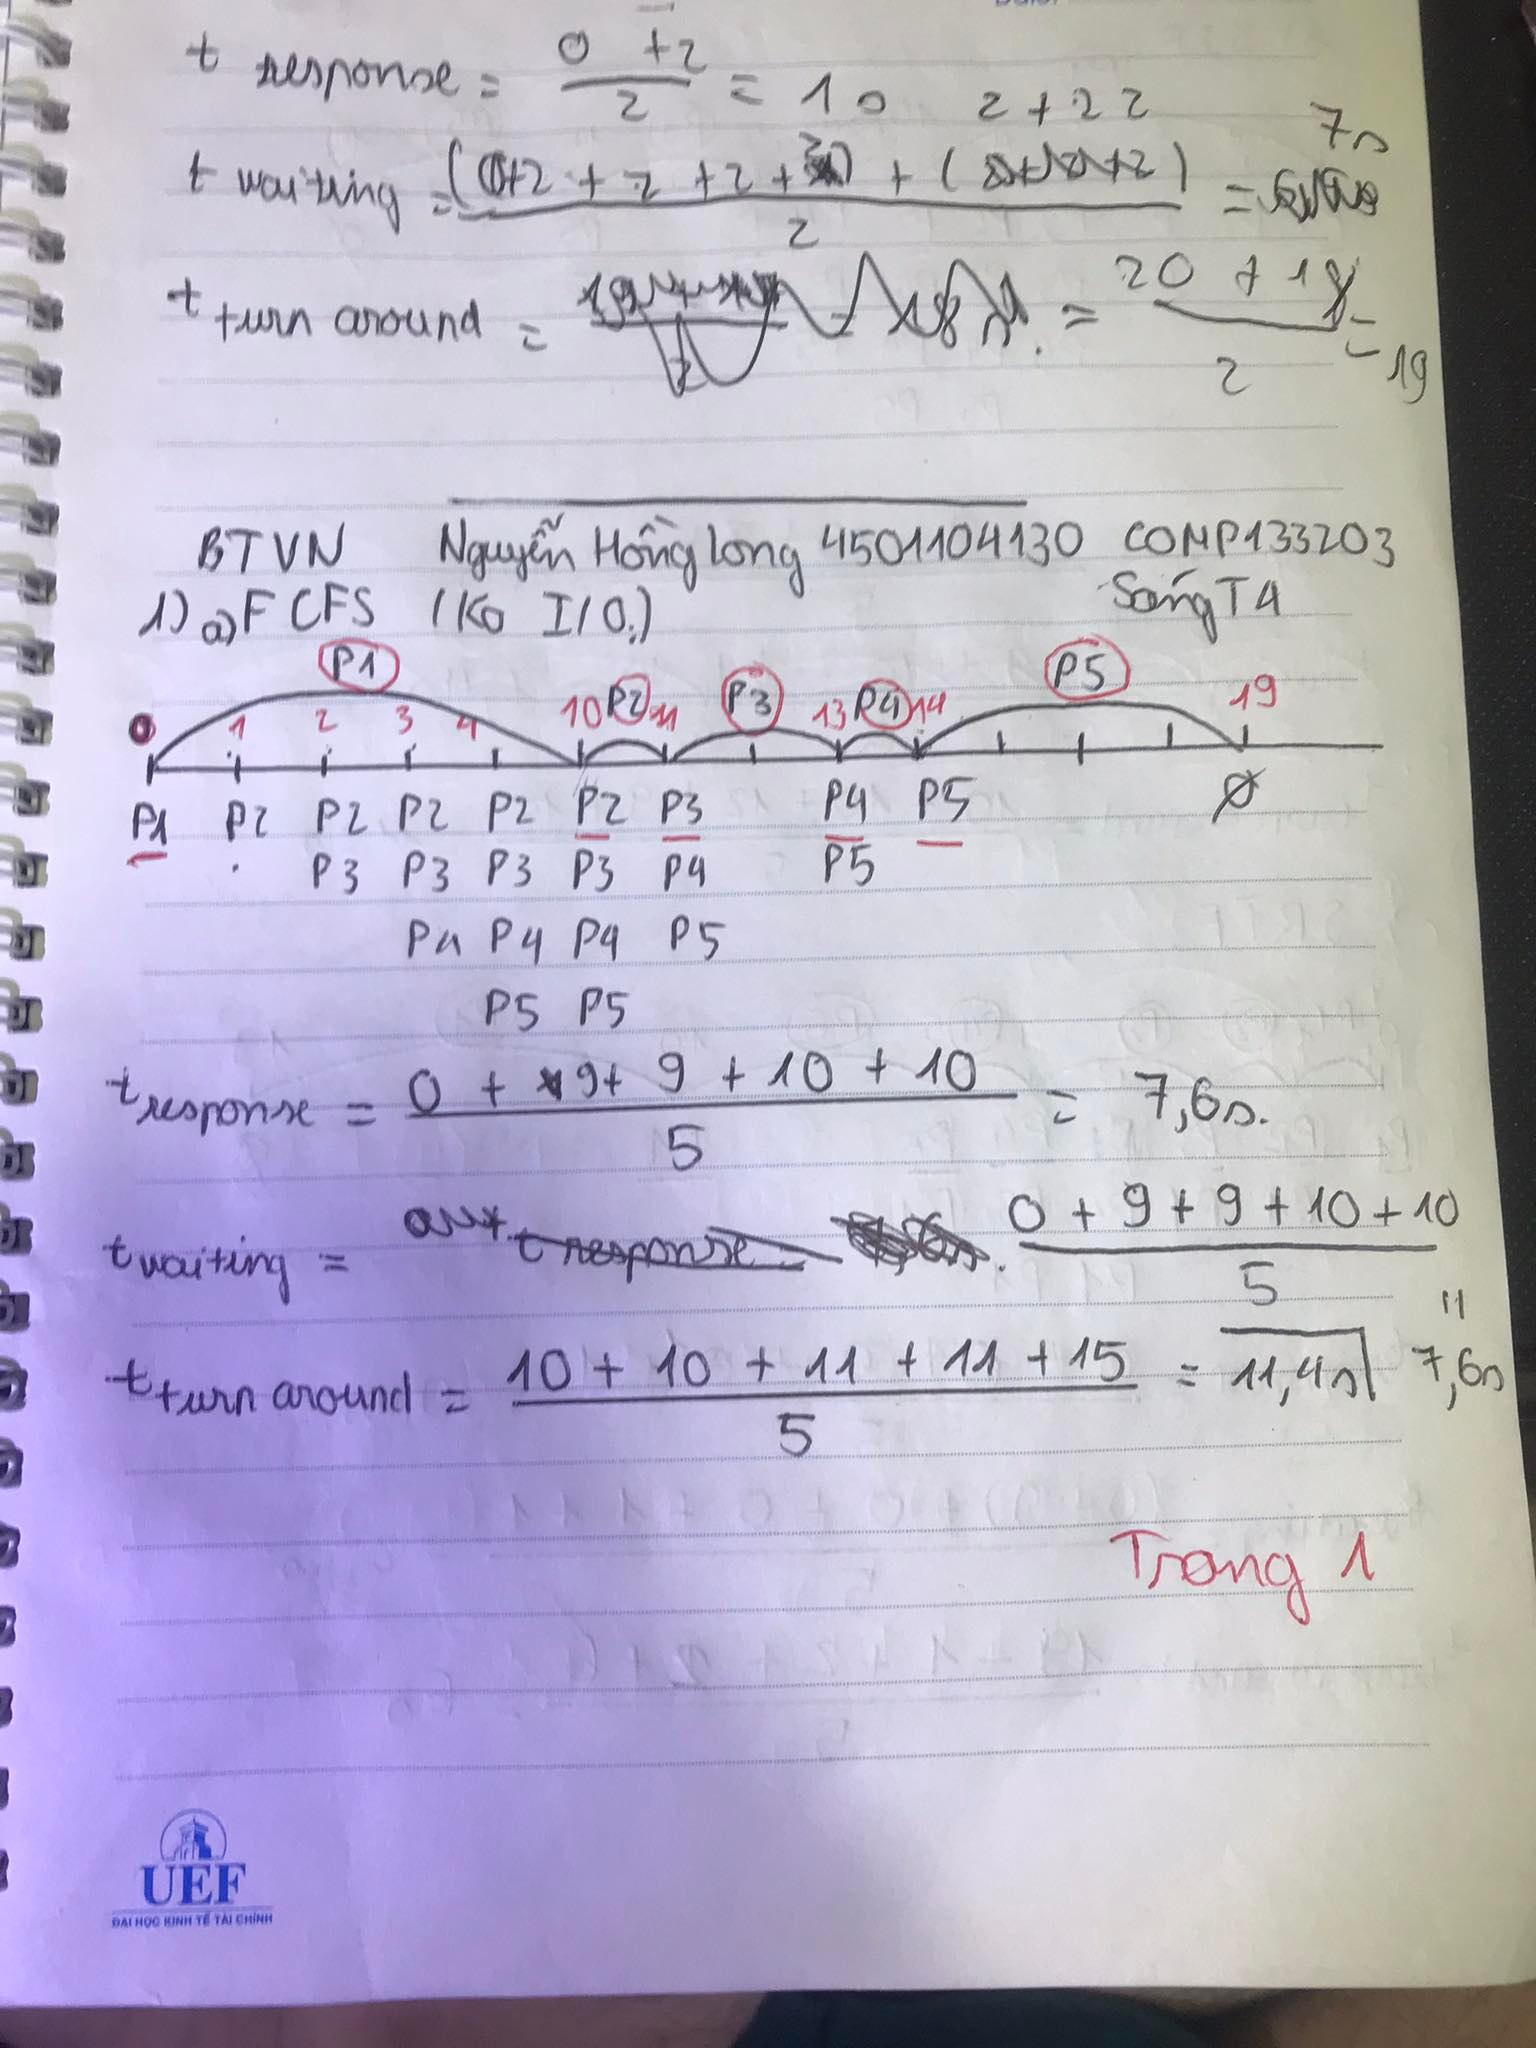 t response = 0 +2 / 2 = 1s
2+22 7s
t waiting = (0+2 + 2 +2 + ) + ( +2) / 2 =
t turn around = = 20 + 18 / 2 = 19
BTVN Nguyễn Hồng Long 4501104130 COMP133203
1) a) FCFS (Ko I/O.) Sáng T4
P1 P2 P3 P4 P5
0 1 2 3 4 10 11 13 14 19
P1 P2 P2 P2 P2 P2 P3 P4 P5 Ø
P3 P3 P3 P3 P4 P5
P4 P4 P4 P5
P5 P5
t response = 0 + 9 + 9 + 10 + 10 / 5 = 7,6s.
t waiting = 0 + 9 + 9 + 10 + 10 / 5 = 7,6s
t turn around = 10 + 10 + 11 + 11 + 15 / 5 = 11,4s
Trang 1
UEF
ĐẠI HỌC KINH TẾ TÀI CHÍNH